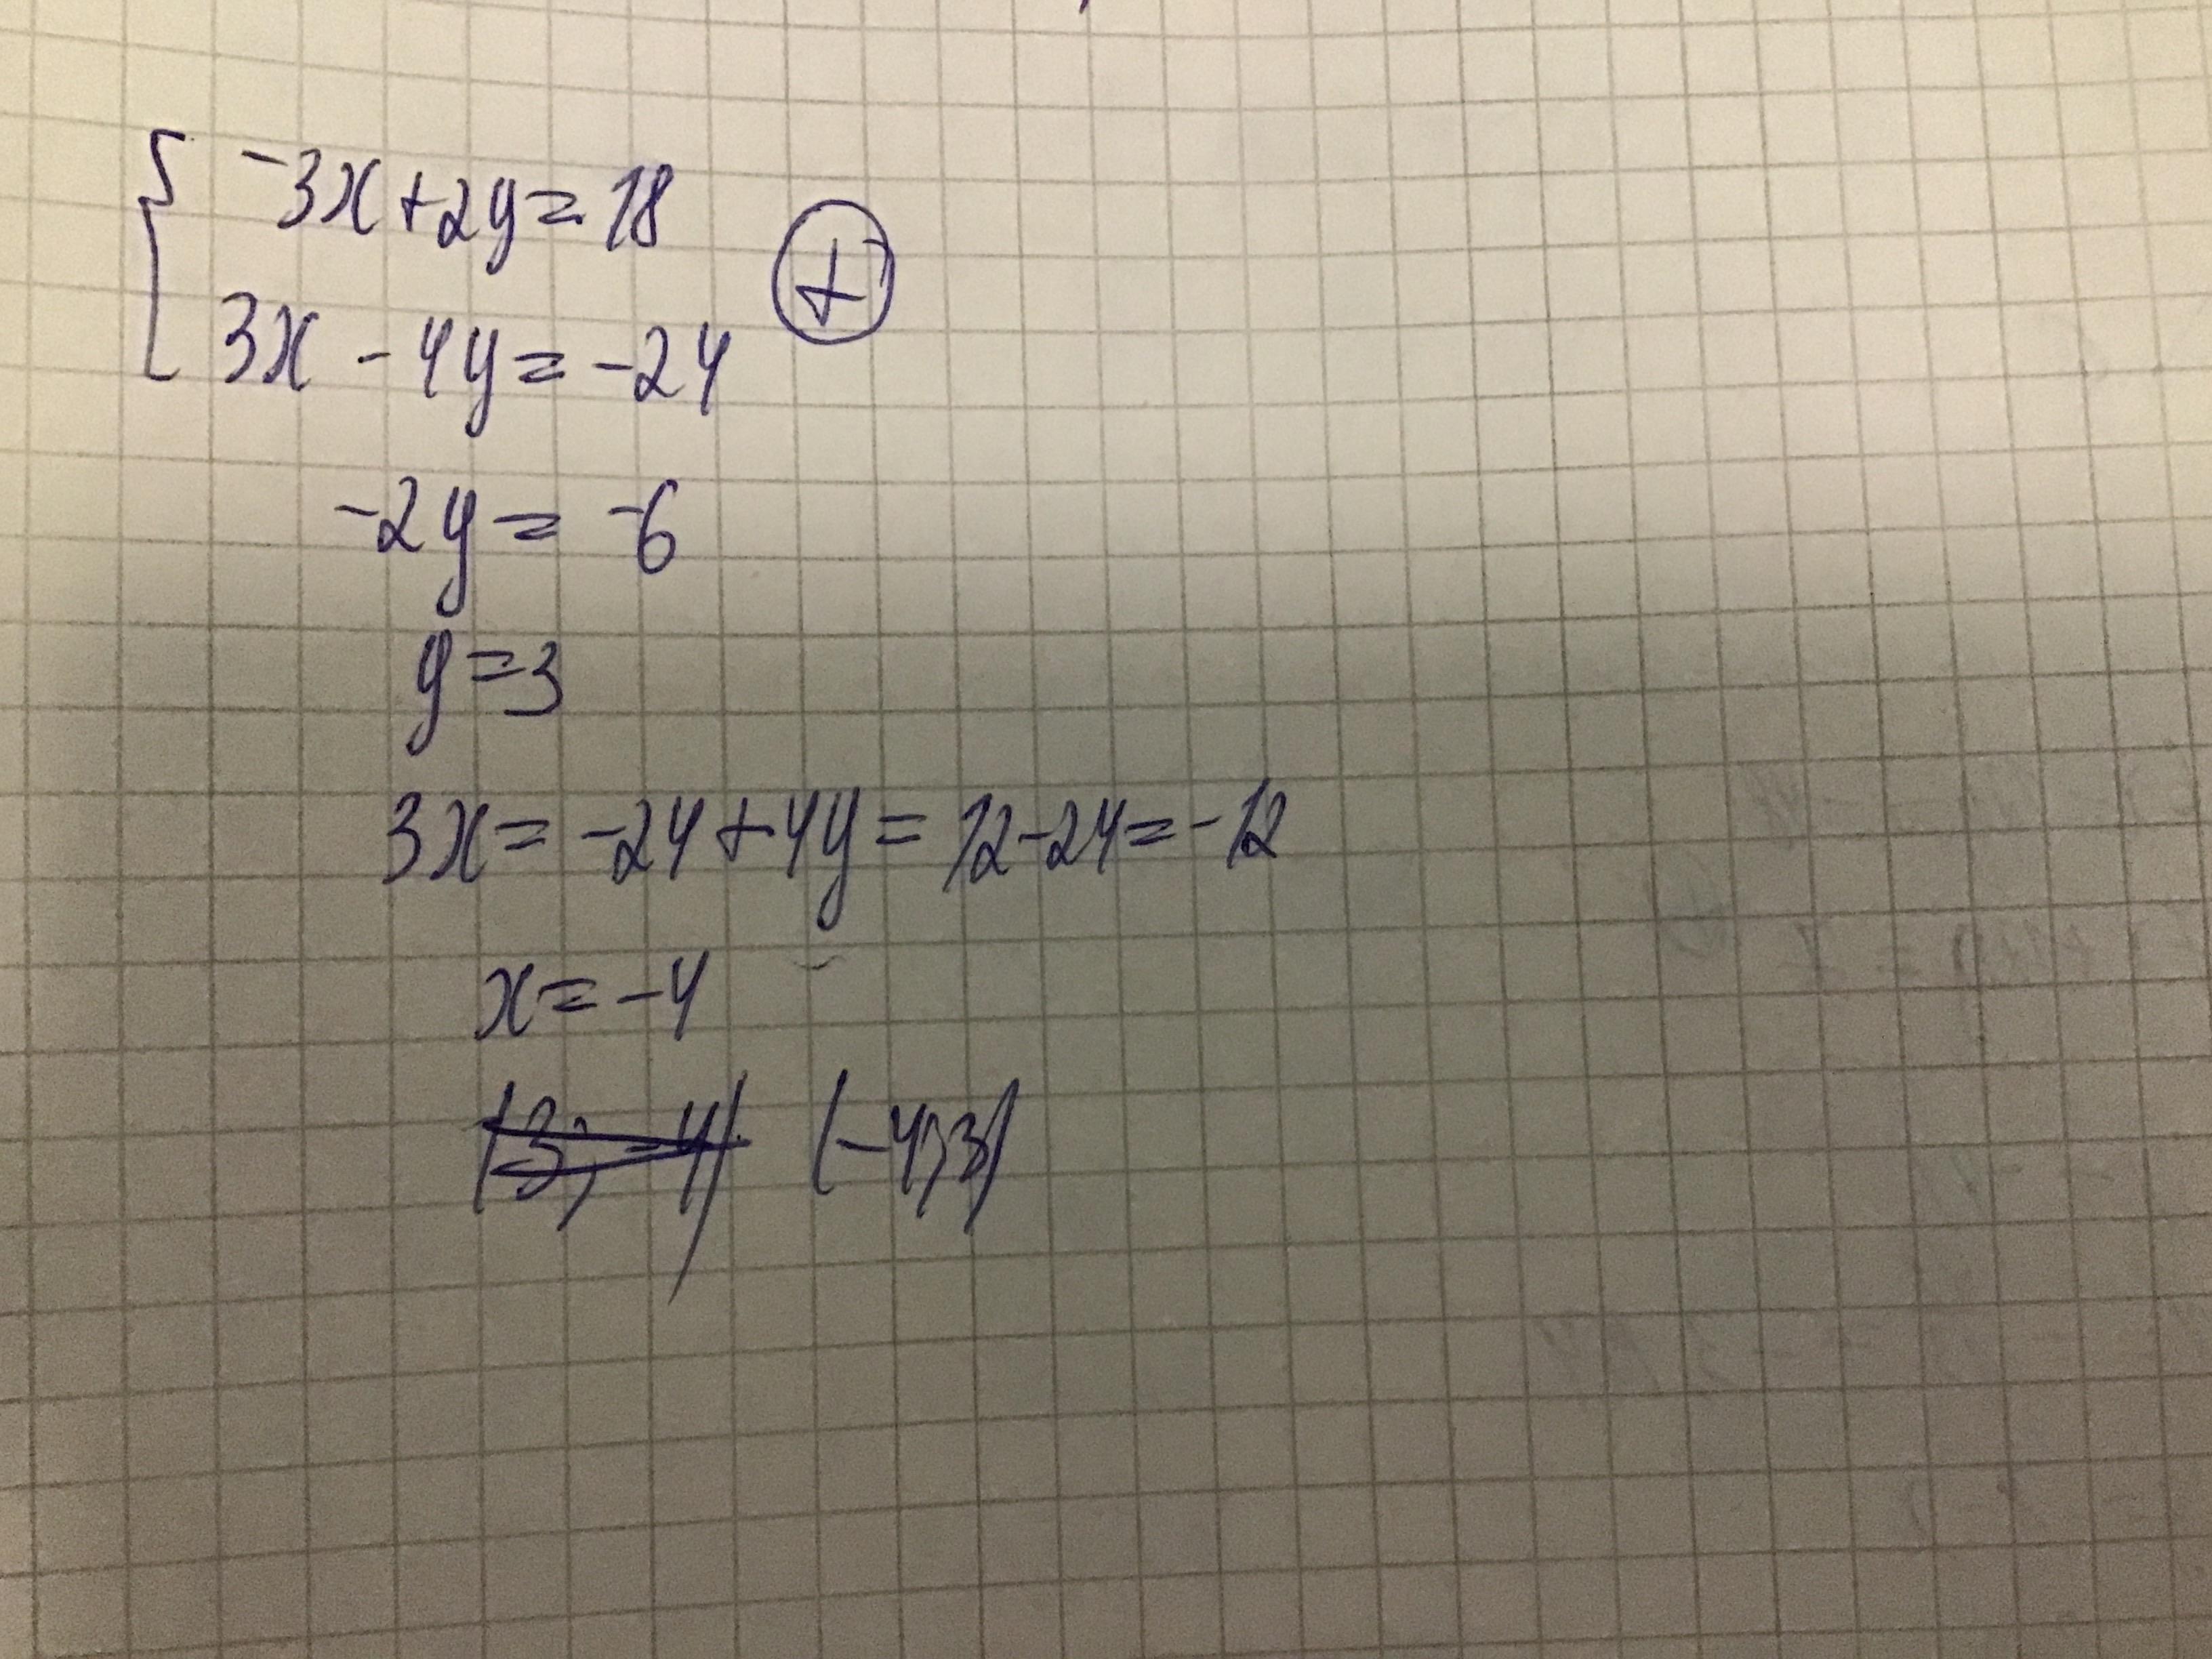 -3x+2y=18
+
3x-4y=-24
-2y=-6
y=3
3x=-24+4y=12-24=-12
x=-4
(3; -4) (-4;3)